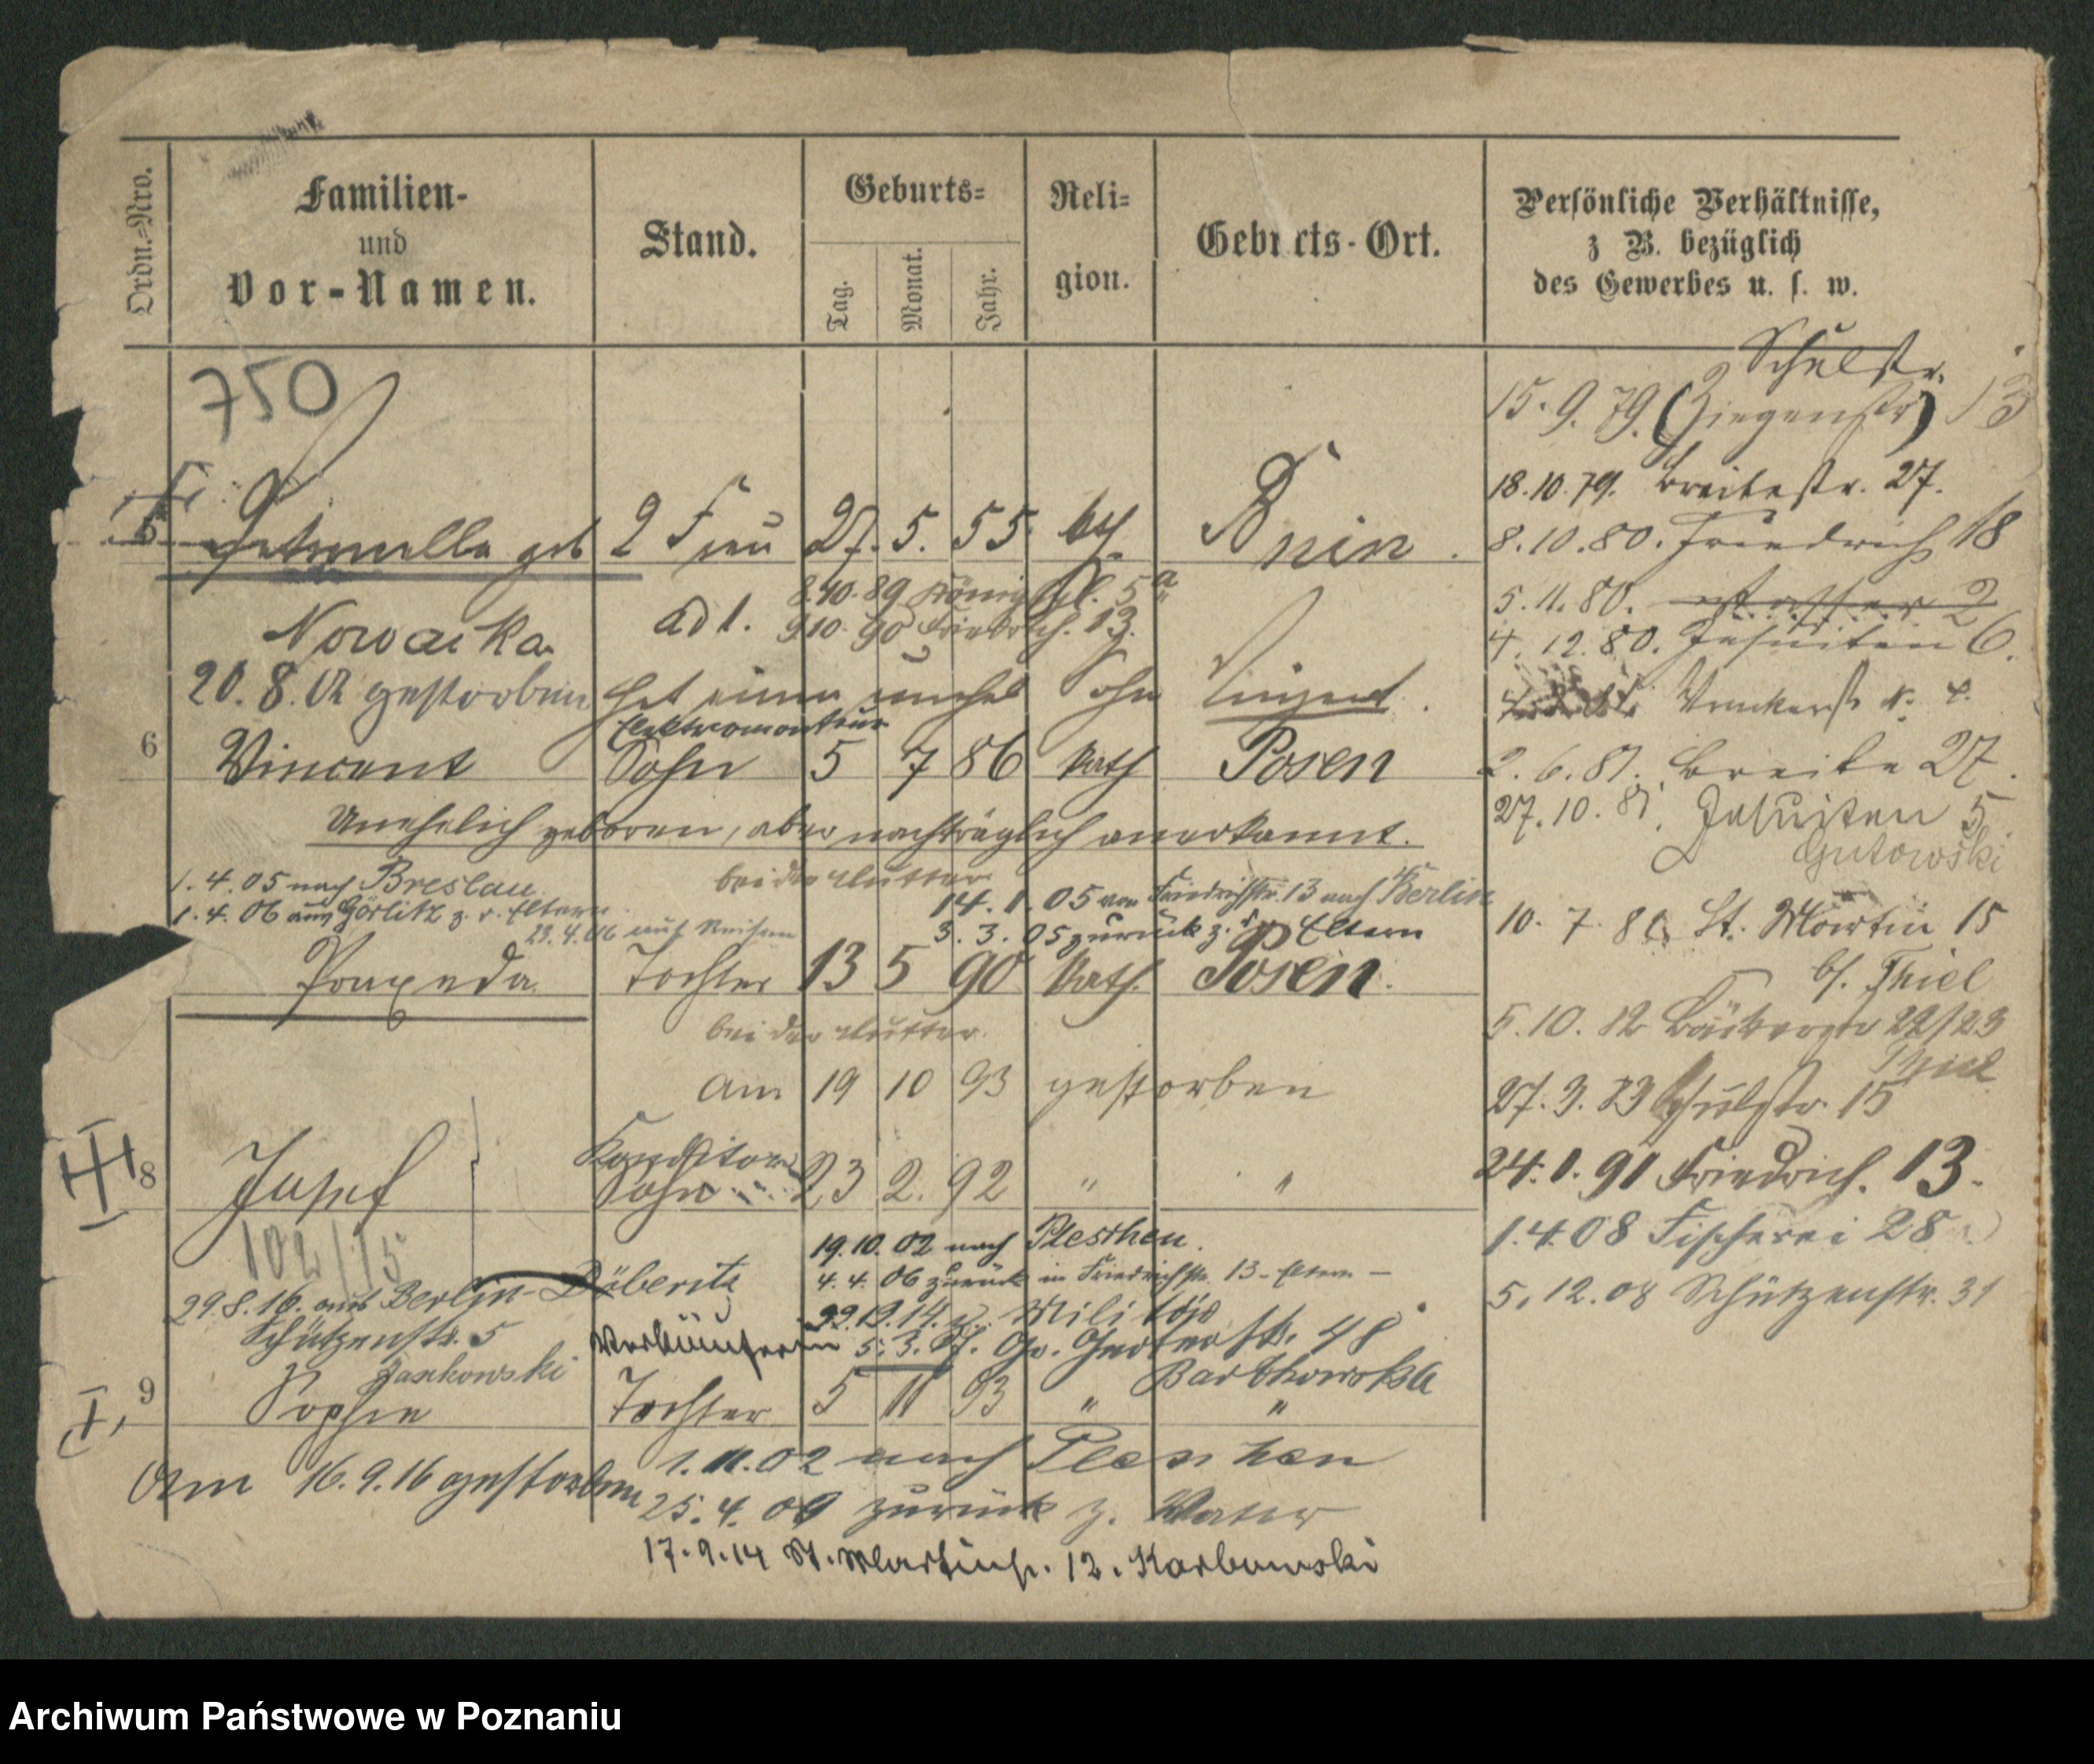 Ordn.-Nro.
Familien-
und
Vor-Namen.
Stand.
Geburts-
Tag.
Monat.
Jahr.
Reli-
gion.
Geburts-Ort.
Persönliche Verhältnisse,
z B. bezüglich
des Gewerbes u. s. w.
750
Schulstr.
15.9.79. (Ziegenstr) 13
18.10.79. Breitestr. 27.
5 Petronella geb 2 Frau 27. 5. 55 kth Bnin.
8.10.80. Friedrich 18
8.10.89 Königspl. 5a
5.11.80. 2
Nowacka ad 1. 9.10.90 Friedrich. 13.
4.12.80. Jesuiten 6.
20.8.02 gestorben hat einen unehel Sohn Vinzent.
N. 4.
Elektromonteur
6 Vincent Sohn 5 7 86 kath Posen
2.6.81. Breite 27.
27.10.81. Jesuiten 5
Unehelich geboren, aber nachträglich anerkannt.
Gutowski
1.4.05 nach Breslau.
bei der Mutter
14.1.05 von Friedrichstr. 13 nach Berlin
1.4.06 aus Görlitz z. d. Eltern
23.4.06 auf Reisen
3.3.05 zurück z. d. Eltern
10.7.82 St. Martin 15
b/. Thiel
Praxeda Tochter 13 5 90 kath. Posen.
5.10.82 Bäckerstr 22/23
Thiel
bei der Mutter.
am 19 10 93 gestorben
27.3.83 Schulstr. 15
Konditor
8 Josef Sohn 23 2. 92 " "
24.1.91 Friedrich. 13.
102/15
19.10.02 nach Pleschen.
1.4.08 Fischerei 28
4.4.06 zurück in Friedrichstr. 13 - Eltern -
29.8.16. aus Berlin-Döberitz
5.12.08 Schützenstr. 31
Schützenstr. 5
z. Militär
Verkäuferin 5.3. Gr. Gerberstr. 48
Jankowski
Bartkowska
9 Sophie Tochter 5 11 93 " "
1.11.02 nach Pleschen
Am 16.9.16 gestorben
25.4.09 zurück z. Vater
17.9.14 St. Martinstr. 12. Karbowski
Archiwum Państwowe w Poznaniu